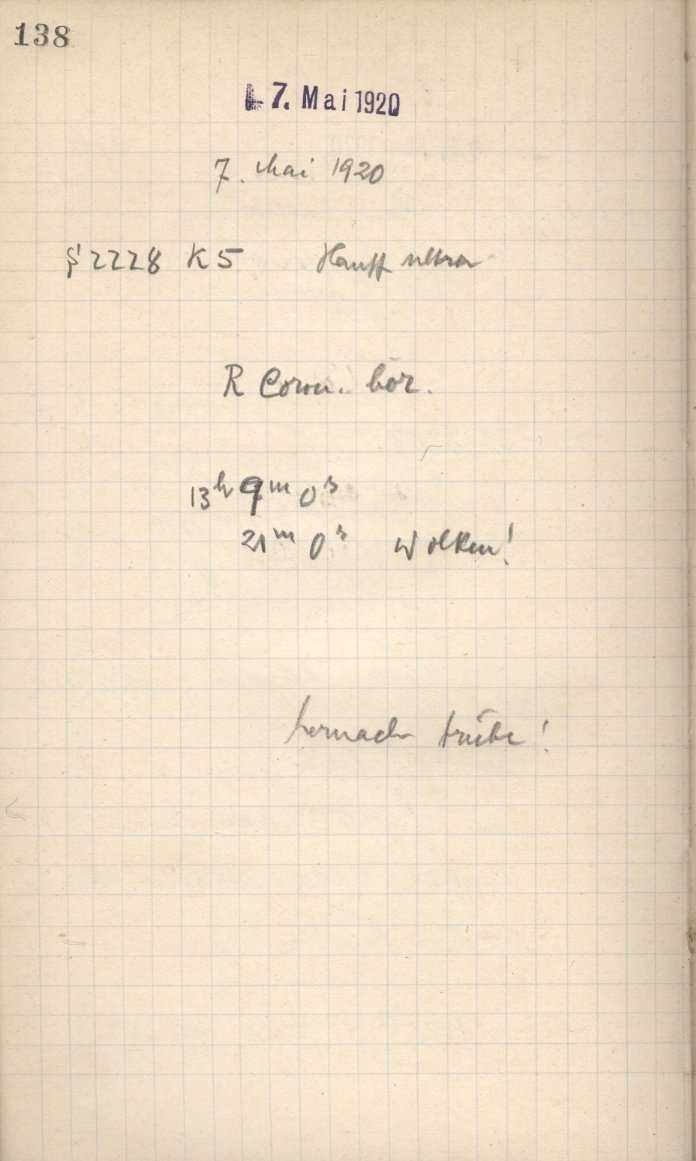 138
7. Mai 1920
7. Mai 1920
2228 K5 Hauff ultra
R Coron. bor.
13h 9m 0s
21m 0s Wolken!
hernach trübe!